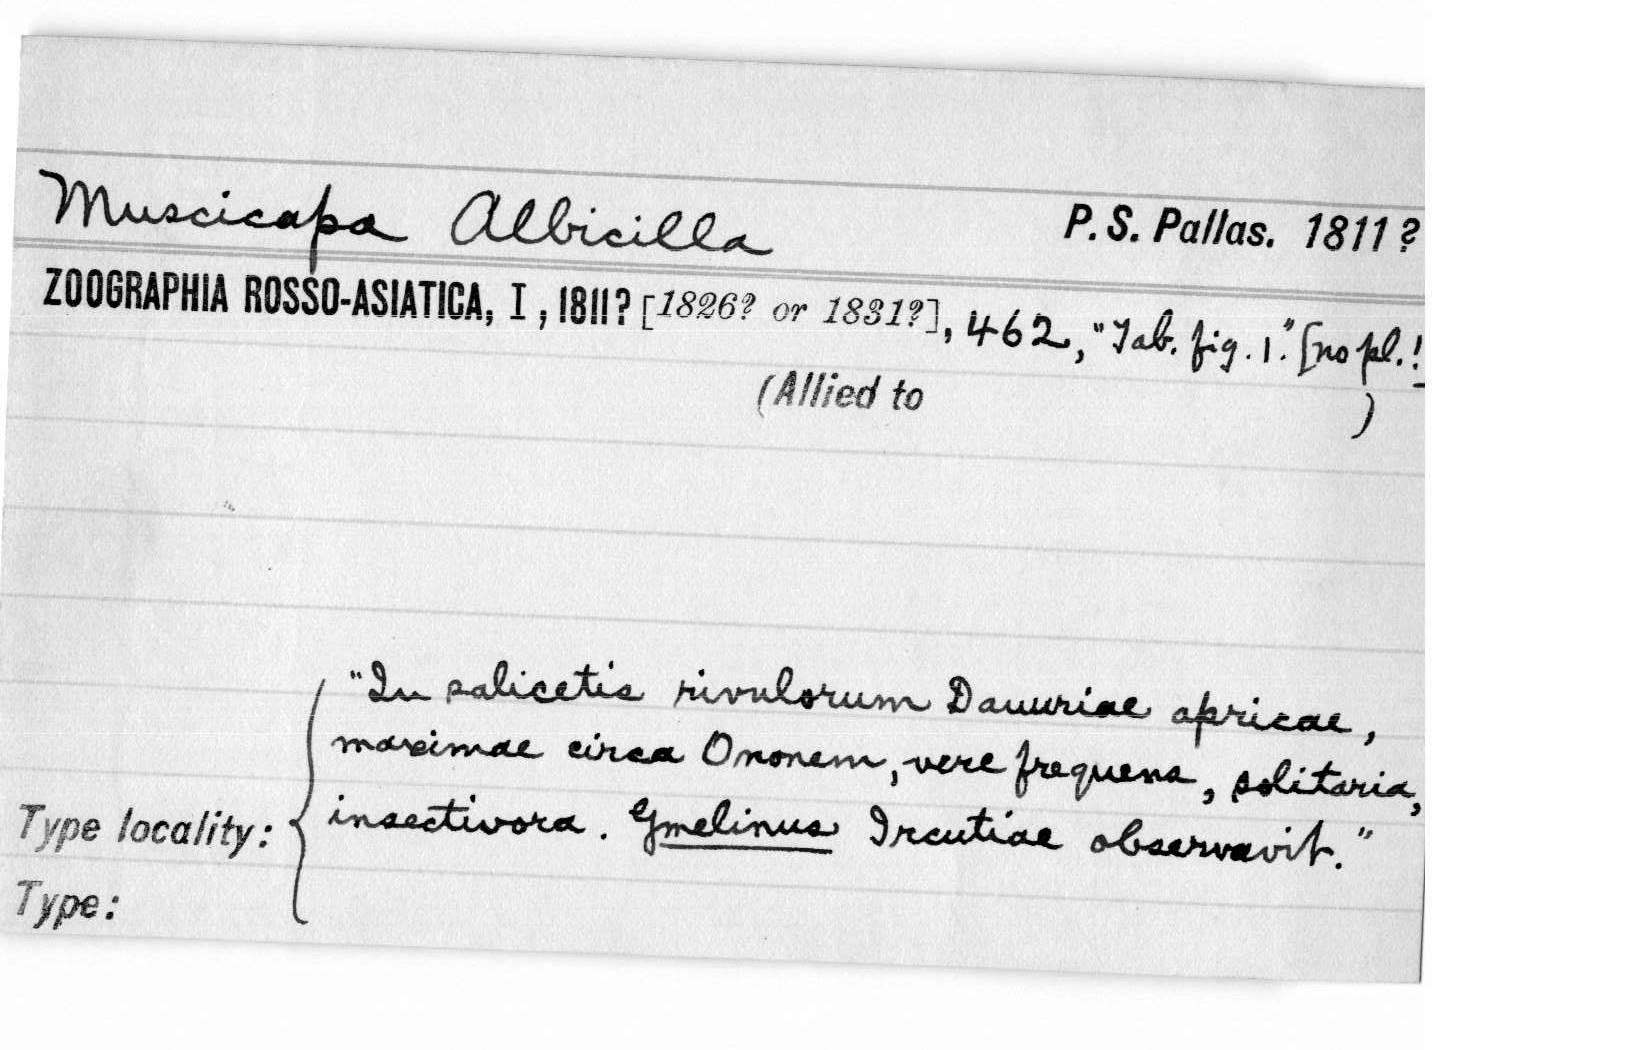 Muscicapa Albicilla P. S. Pallas. 1811?
ZOOGRAPHIA ROSSO-ASIATICA, I, 1811? [1826? or 1831?], 462, "Tab. fig. 1." [no pl.!
(Allied to )
"In salicetis rivulorum Dauuriae apricae,
maximae circa Ononem, vere frequens, solitaria,
insectivora. Gmelinus Ircutiae observavit."
Type locality:
Type: